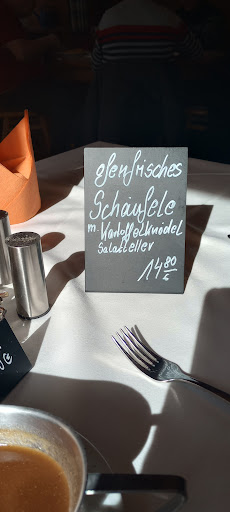 ofenfrisches
Schäufele
m. Kartoffelknödel
Salatteller
14 80
€